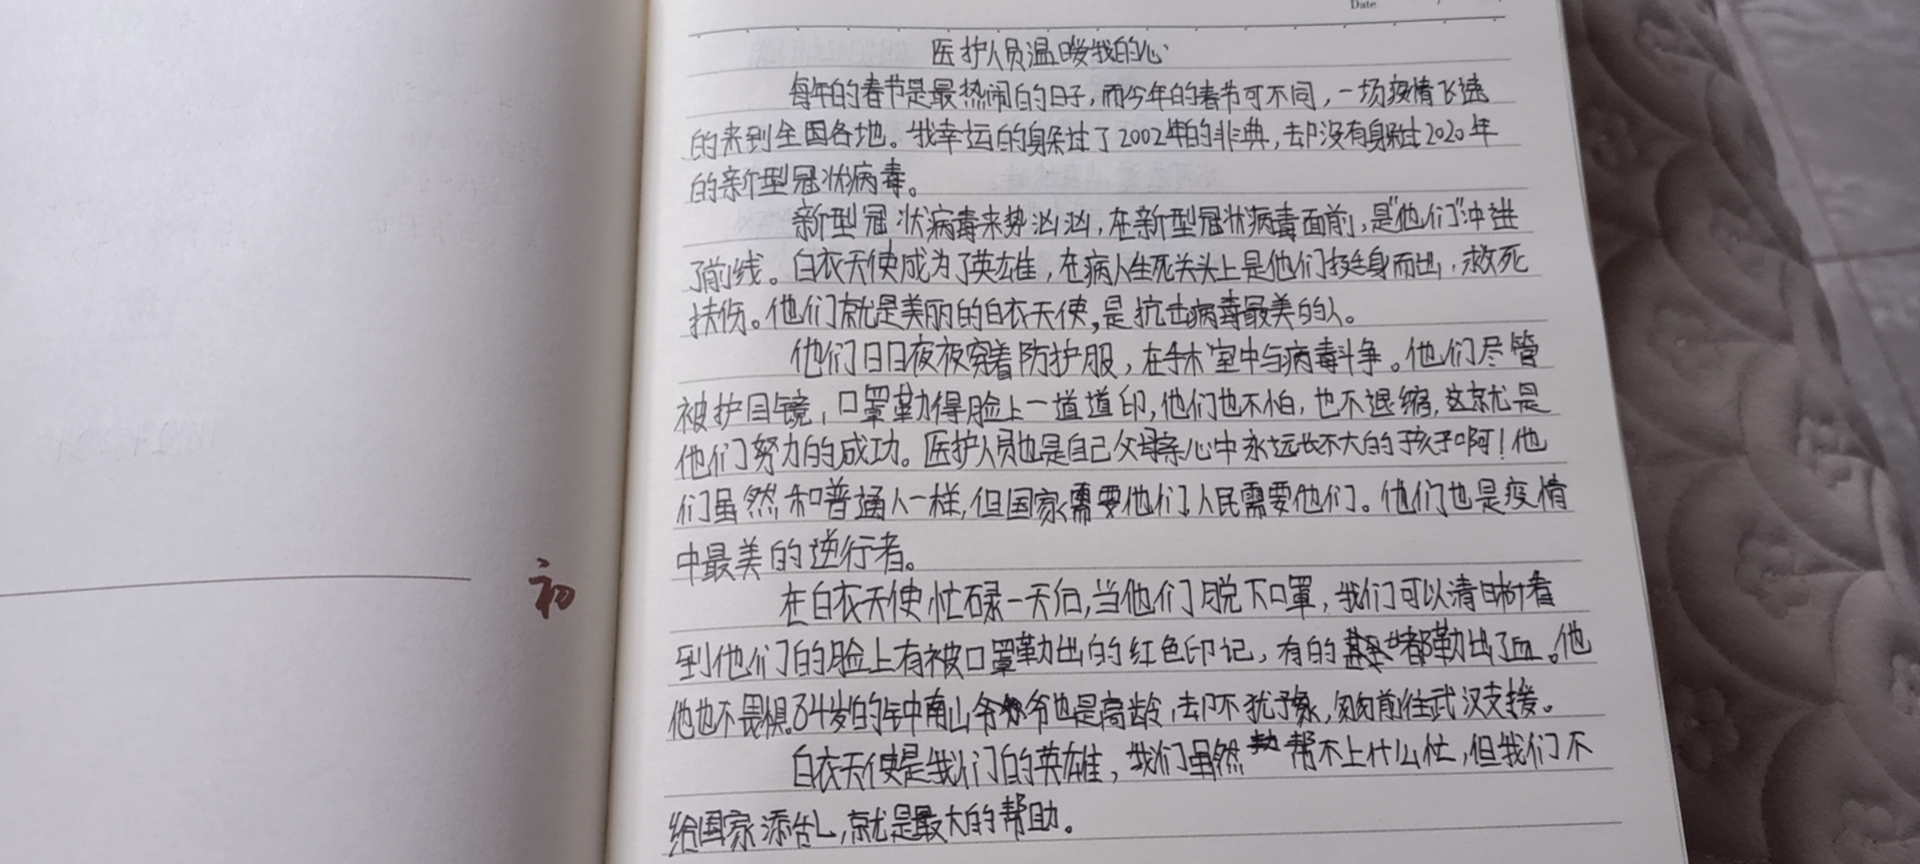 Date
医护人员温暖我的心
每年的春节是最热闹的日子，而今年的春节可不同，一场疫情飞速
的来到全国各地。我幸运的躲过了2002年的非典，却没有躲过2020年
的新型冠状病毒。
新型冠状病毒来势汹汹，在新型冠状病毒面前，是“他们”冲进
了前线。白衣天使成为了英雄，在病人生死关头上是他们挺身而出，救死
扶伤。他们就是美丽的白衣天使，是抗击病毒最美的人。
他们日日夜夜穿着防护服，在手术室中与病毒斗争。他们尽管
被护目镜，口罩勒得脸上一道道印，他们也不怕，也不退缩，这就是
他们努力的成功。医护人员也是自己父母亲心中永远长不大的孩子啊！他
们虽然和普通人一样，但国家需要他们，人民需要他们。他们也是疫情
中最美的逆行者。
初
在白衣天使忙碌一天后，当他们脱下口罩，我们可以清晰看
到他们的脸上有被口罩勒出的红色印记，有的都勒出了血。他
他也不畏惧。84岁的钟南山爷爷也是高龄，却不犹豫，匆匆前往武汉支援。
白衣天使是我们的英雄，我们虽然帮不上什么忙，但我们不
给国家添乱，就是最大的帮助。